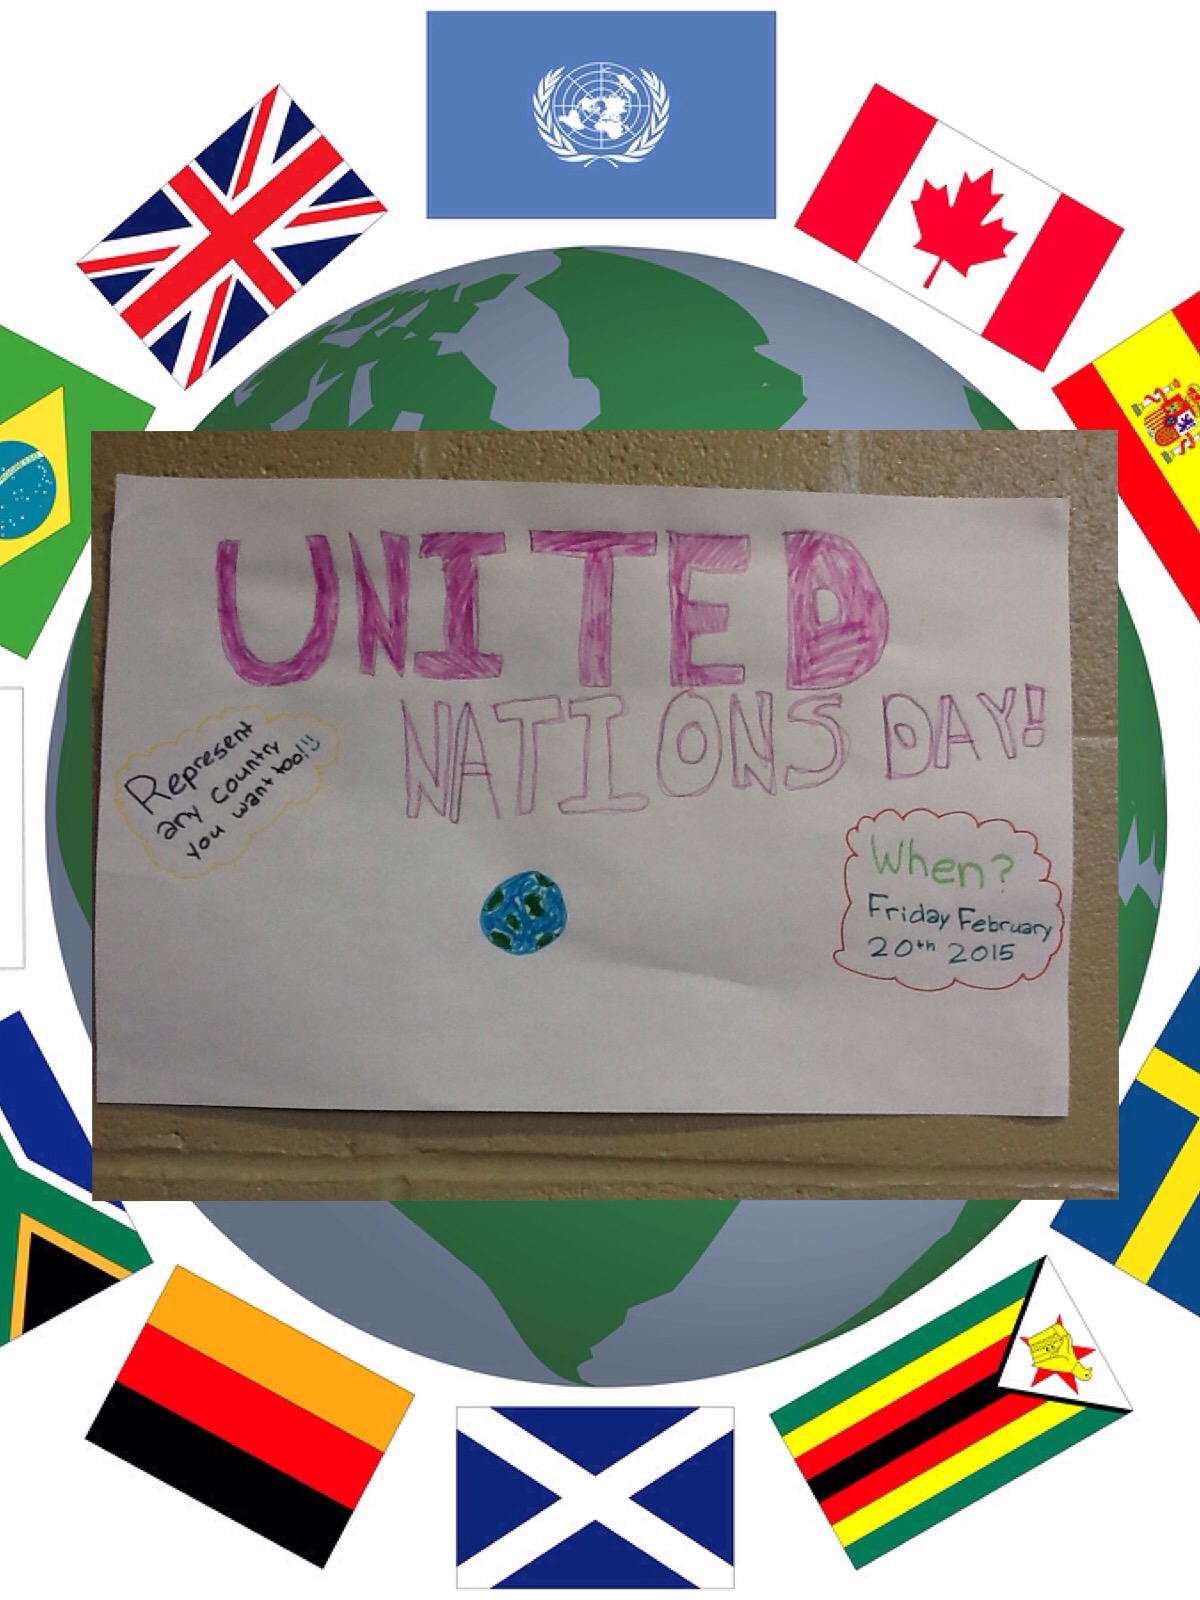 UNITED
NATIONS DAY!
Represent
any country
you want too!!!
When?
Friday February
20th 2015